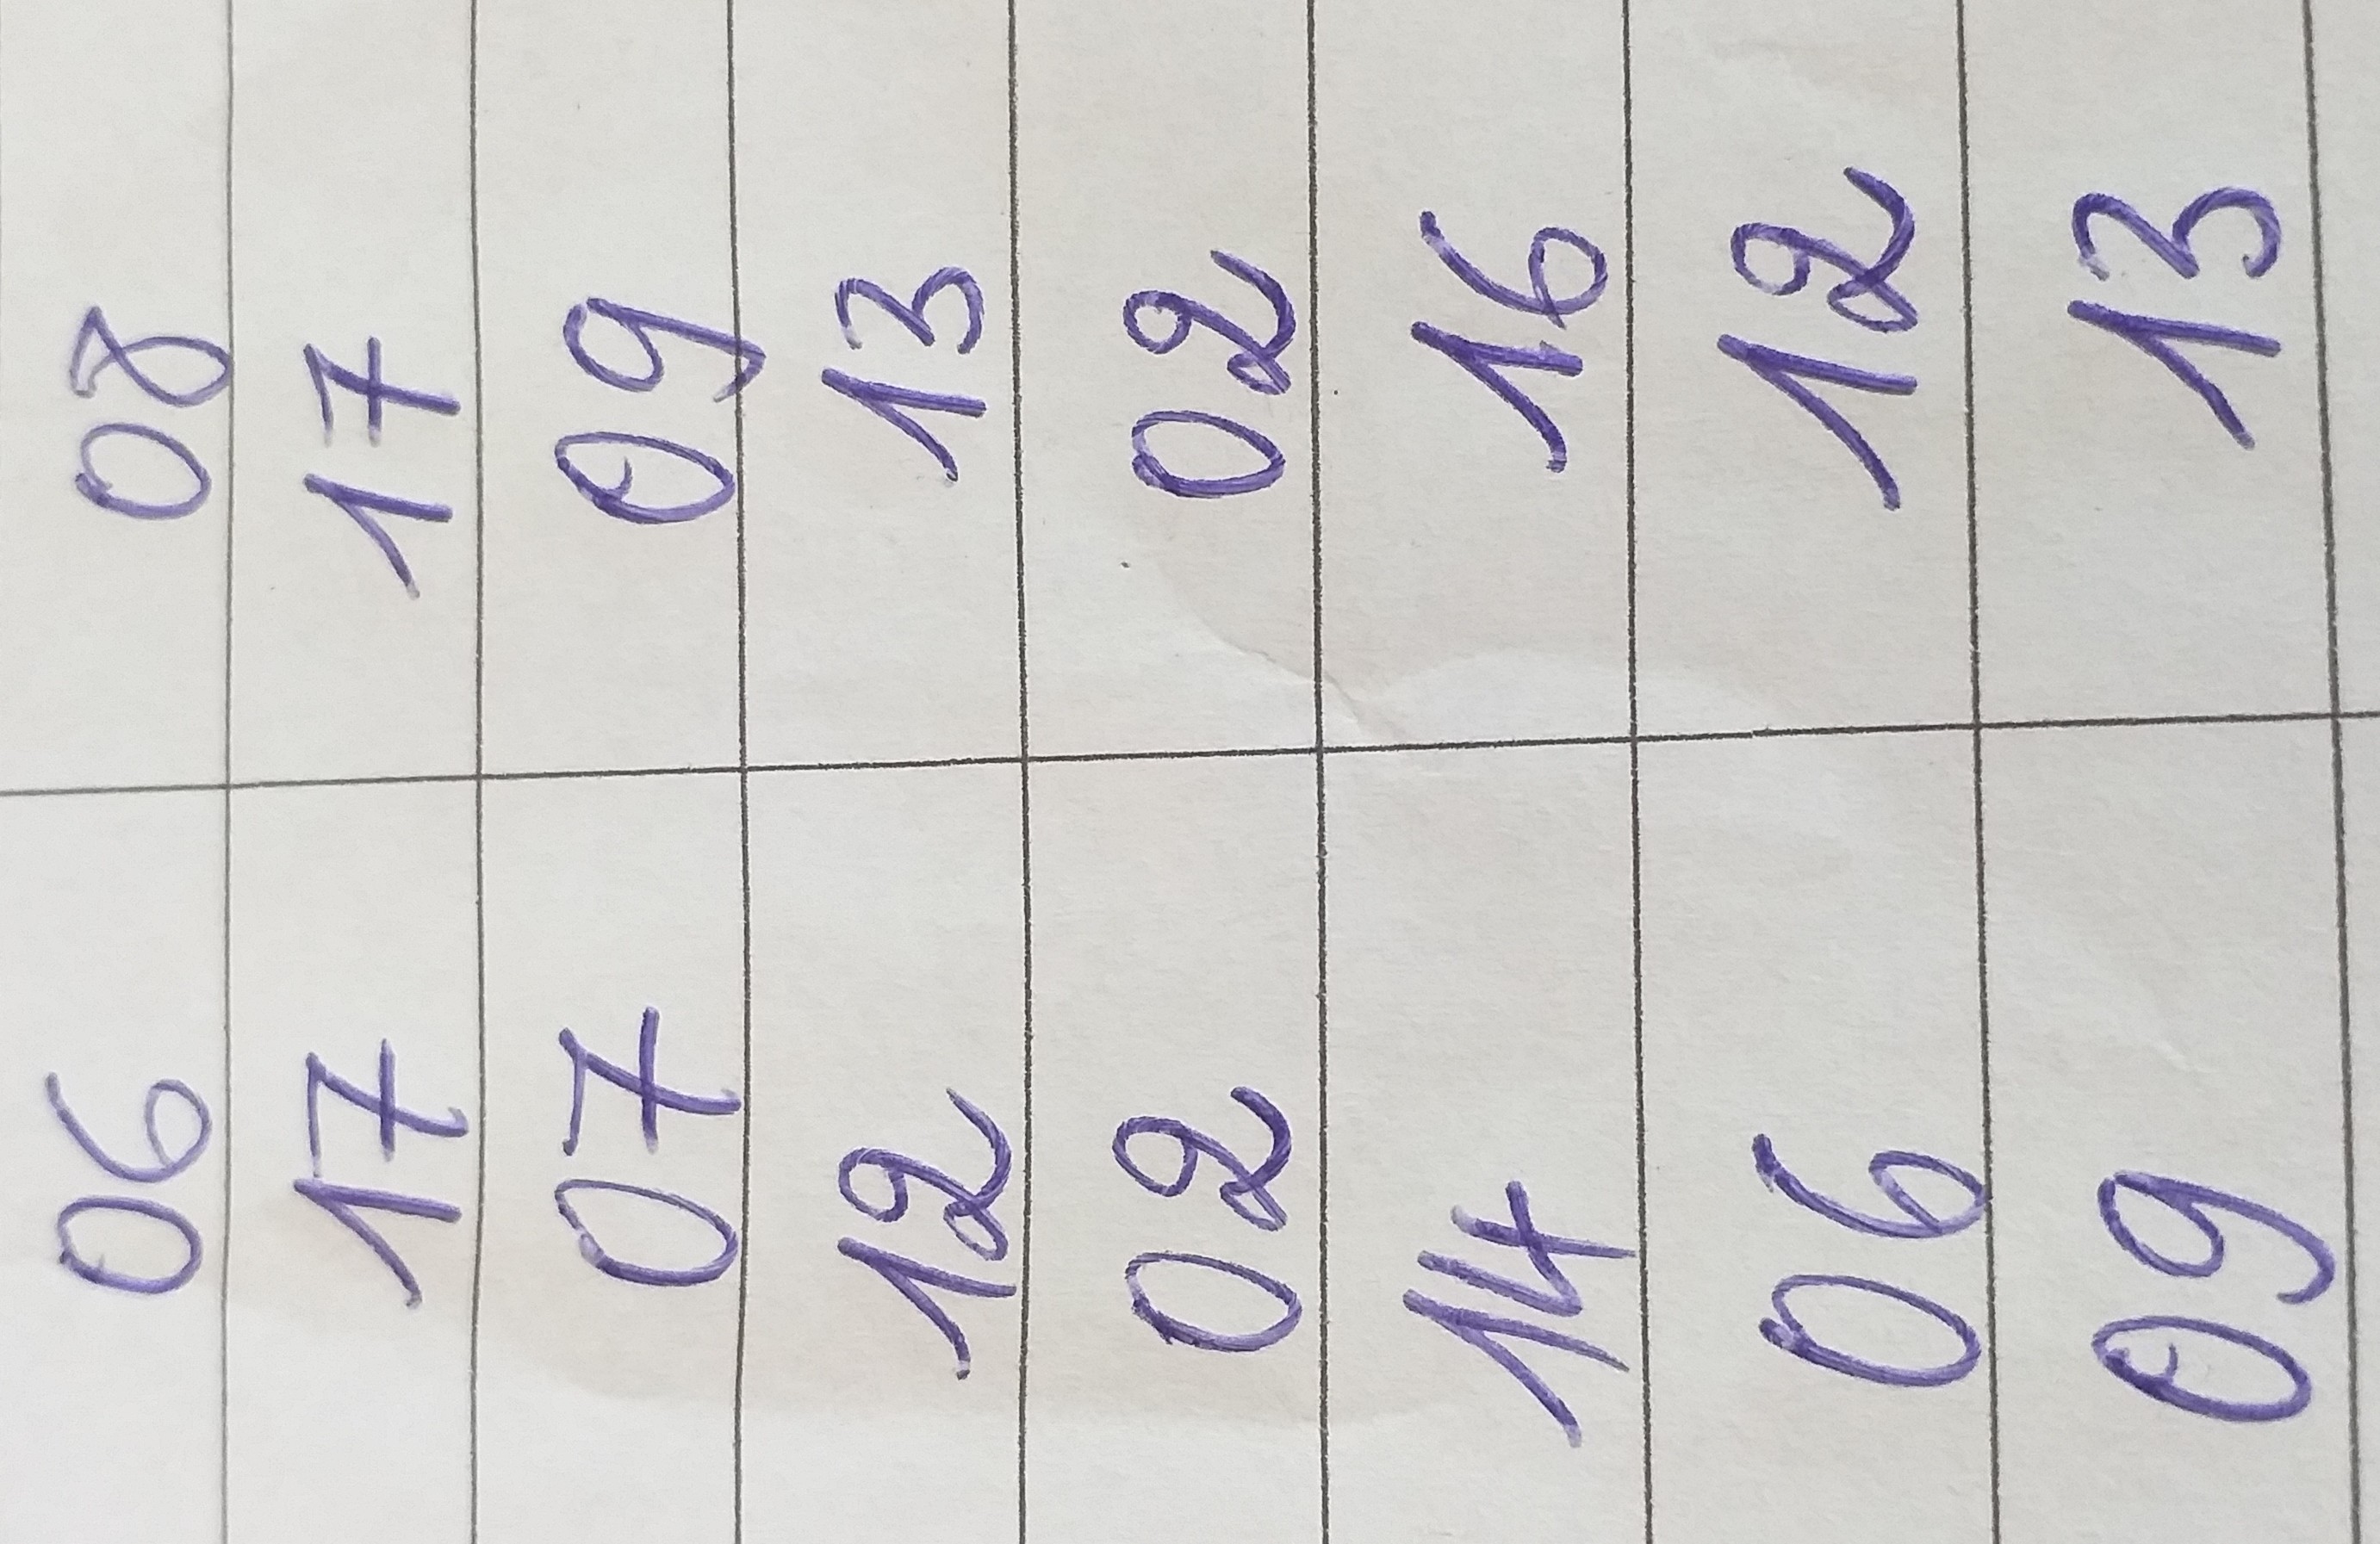 06 08
17 17
07 09
12 13
02 02
14 16
06 12
09 13